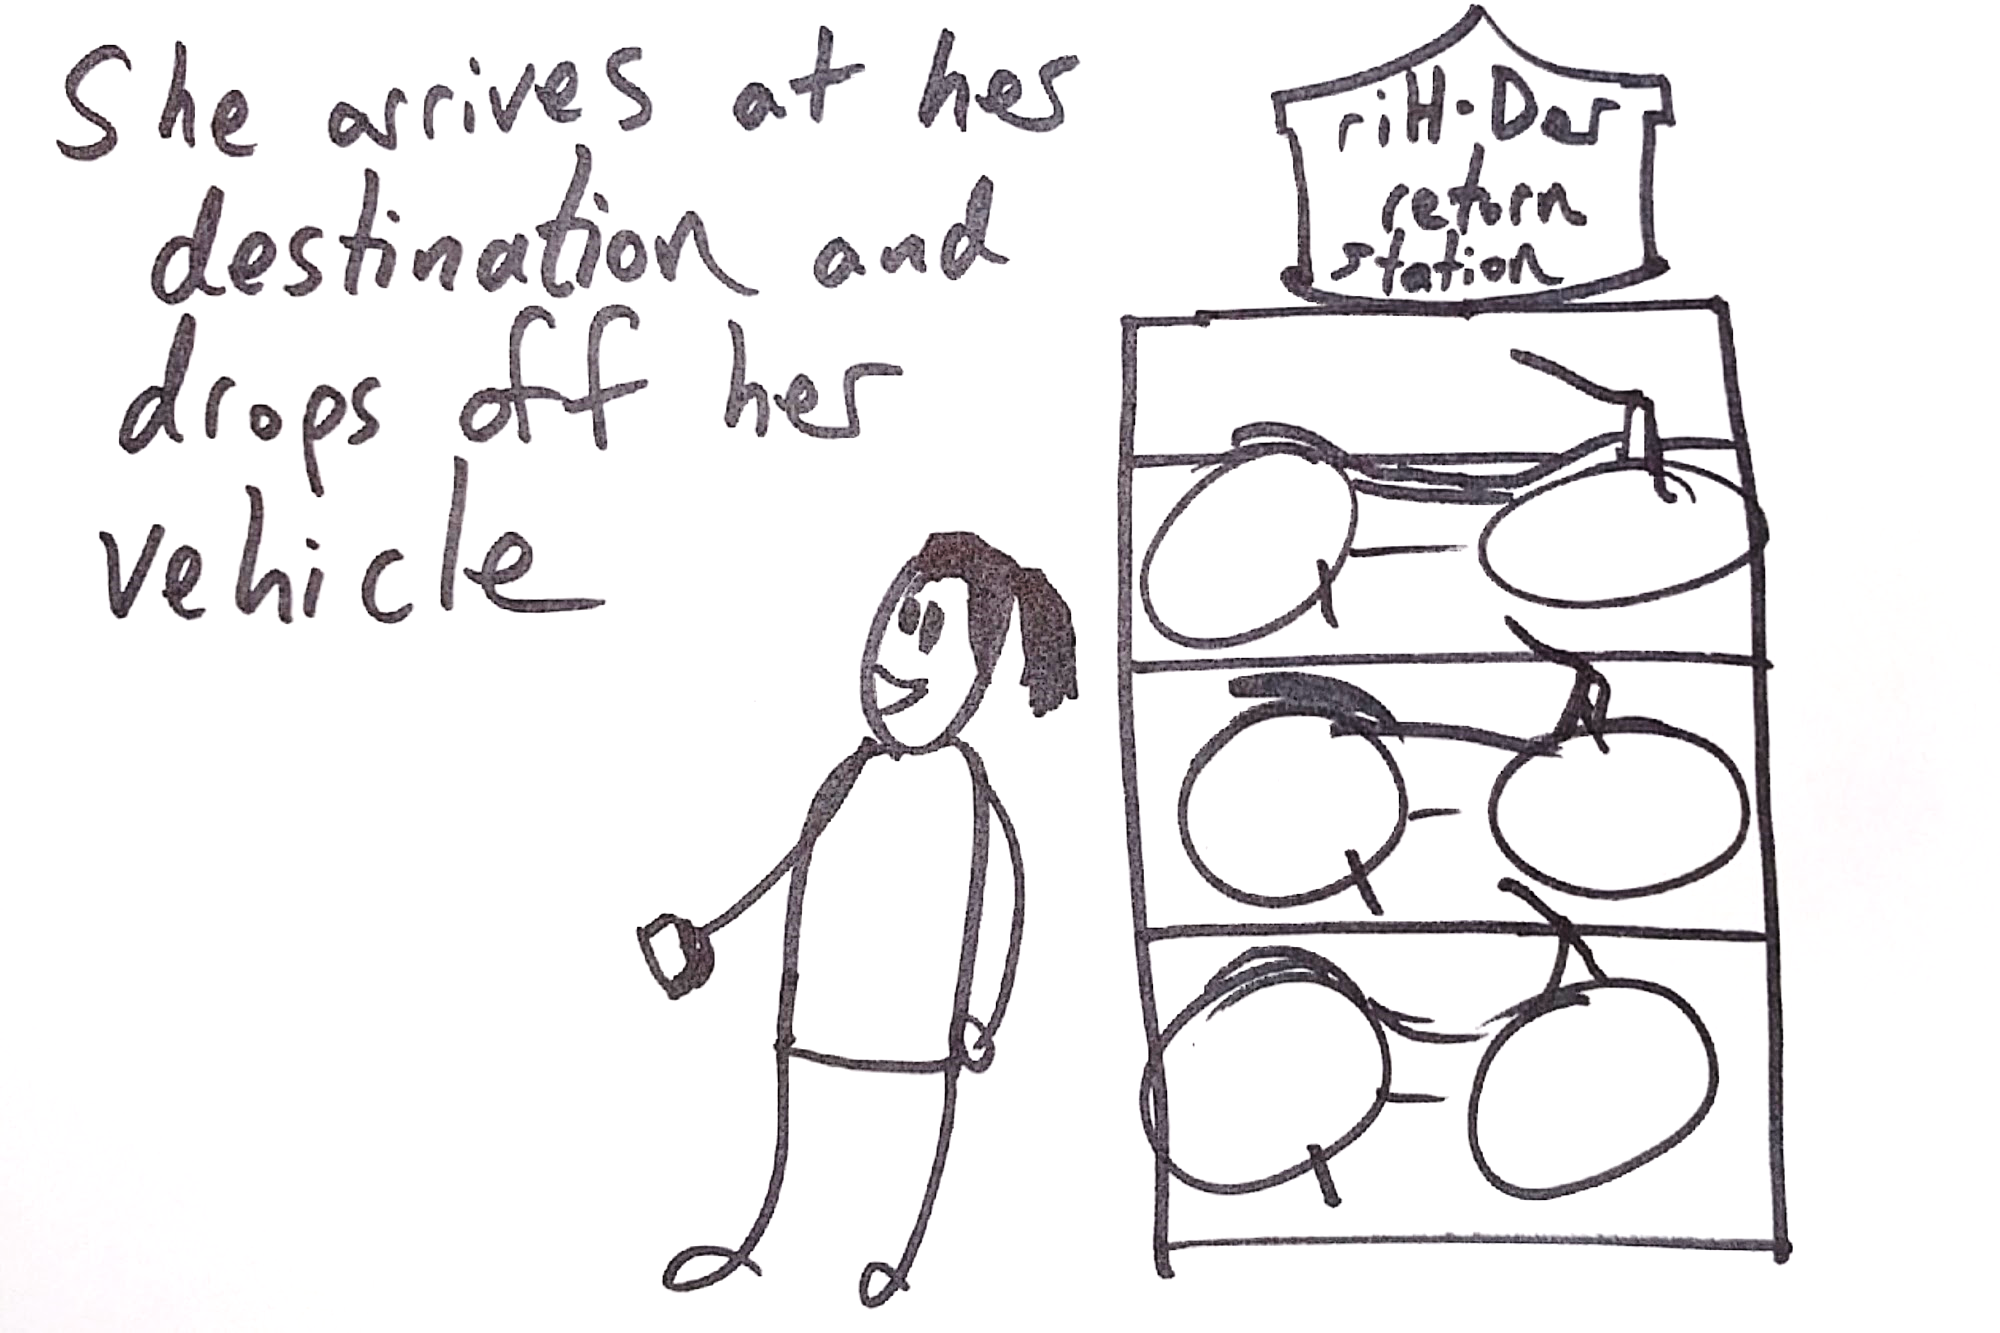 She arrives at her
destination and
drops off her
vehicle
riH·Der
return
station